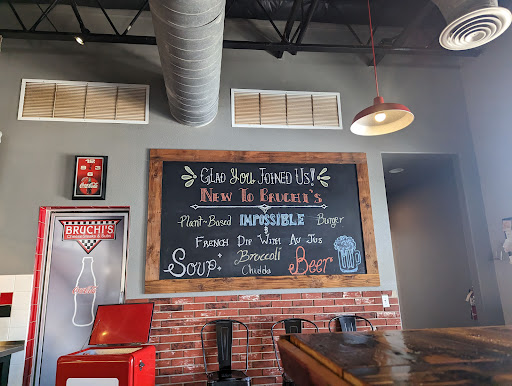 Glad You Joined Us!
New To Bruchi's
Plant-Based IMPOSSIBLE Burger
&
French Dip With Au Jus
Soup: Broccoli Chedda
Beer
BRUCHI'S
Cheesesteaks & Subs
Coca-Cola
BRUCHI'S